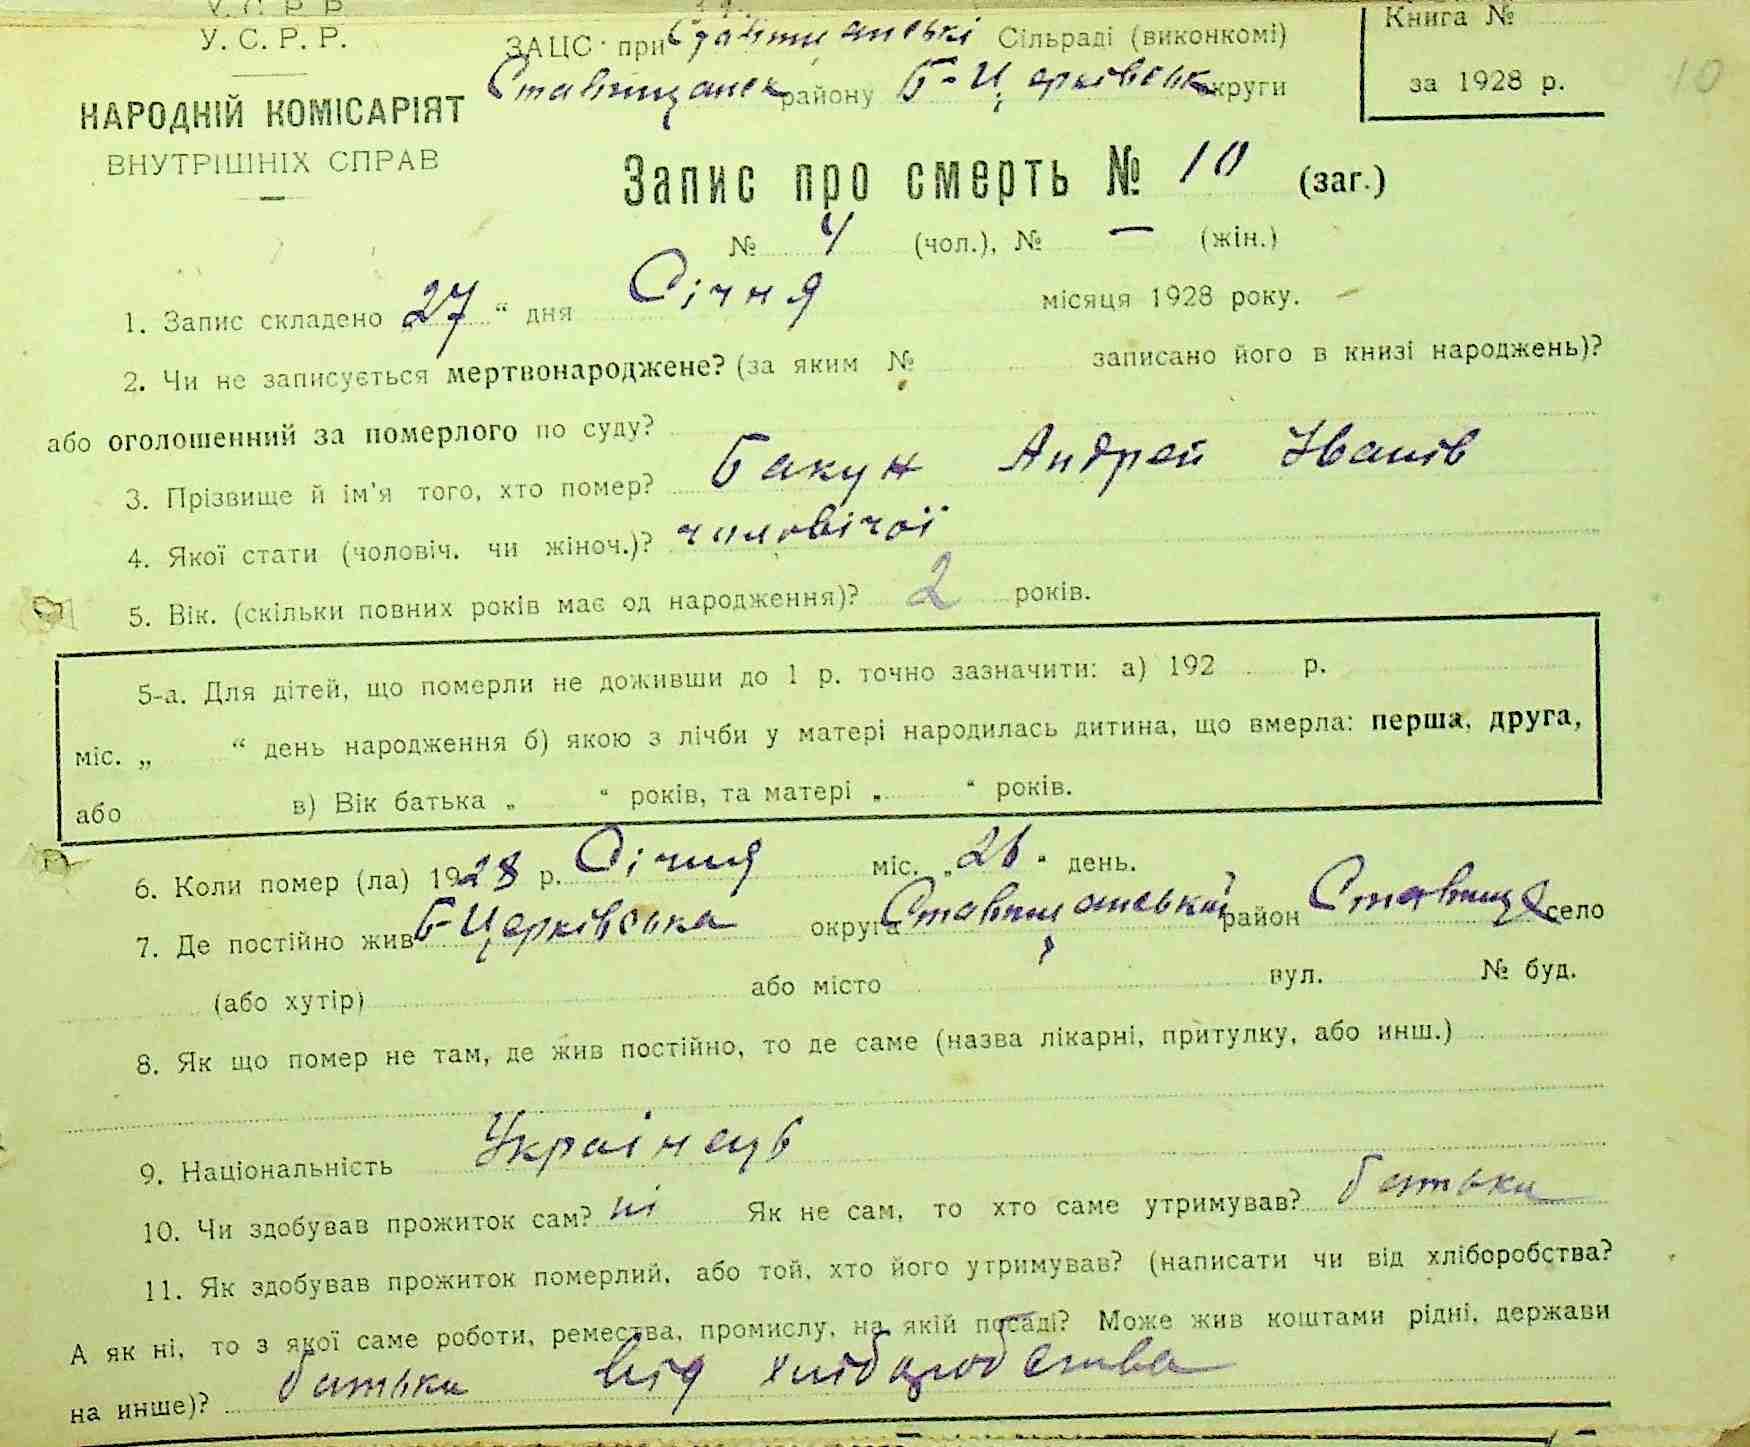 У. С. Р. Р.
НАРОДНІЙ КОМІСАРІЯТ
ВНУТРІШНІХ СПРАВ
ЗАЦС при Ставищанські Сільраді (виконкомі)
Ставищанск району Б-Церківськ округи
Книга №
за 1928 р.
10
Запис про смерть № 10 (заг.)
№ 4 (чол.), № — (жін.)
1. Запис складено „27“ дня Січня місяця 1928 року.
2. Чи не записується мертвонароджене? (за яким № записано його в книзі народжень)?
або оголошенний за померлого по суду?
3. Прізвище й ім'я того, хто помер? Бакун Андрей Іванів
4. Якої стати (чоловіч. чи жіноч.)? чоловічої
5. Вік. (скільки повних років має од народження)? 2 років.
5-а. Для дітей, що померли не доживши до 1 р. точно зазначити: а) 192 р.
міс. „ “ день народження б) якою з лічби у матері народилась дитина, що вмерла: перша, друга,
або в) Вік батька „ “ років, та матері „ “ років.
6. Коли помер (ла) 1928 р. Січня міс. „26“ день.
7. Де постійно жив Б-Церківська округа Ставищанський район Ставище село
(або хутір) або місто вул. № буд.
8. Як що помер не там, де жив постійно, то де саме (назва лікарні, притулку, або инш.)
9. Національність Українець
10. Чи здобував прожиток сам? ні Як не сам, то хто саме утримував? батьки
11. Як здобував прожиток померлий, або той, хто його утримував? (написати чи від хліборобства?
А як ні, то з якої саме роботи, ремества, промислу, на якій посаді? Може жив коштами рідні, держави
на инше)? батьки від хліборобства